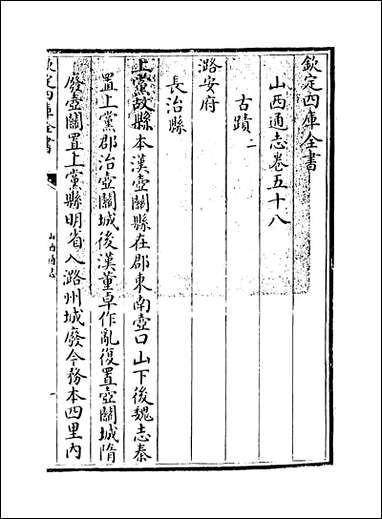 欽定四庫全書
山西通志卷五十八
古蹟二
潞安府
長治縣
上黨故縣本漢壺關縣在郡東南壺口山下後魏志秦
置上黨郡治壺關城後漢董卓作亂復置壺關城隋
廢壺關置上黨縣明省入潞州城廢今務本四里内
欽定四庫全書
山西通志
一